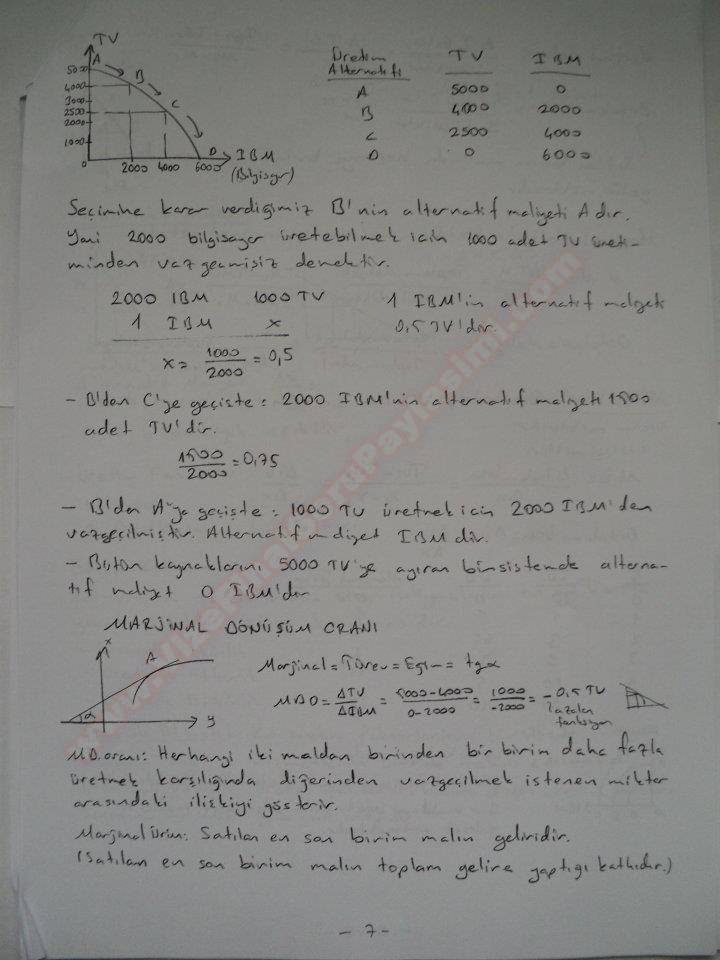 TV
A
B
C
D
5000
4000
3000
2500
2000
1000
0
2000 4000 6000
IBM
(Bilgisayar)
Üretim Alternatifi TV IBM
A 5000 0
B 4000 2000
C 2500 4000
D 0 6000
Seçimine karar verdiğimiz B'nin alternatif maliyeti A dır.
Yani 2000 bilgisayar üretebilmek için 1000 adet TV üreti-
minden vazgeçmişiz demektir.
2000 IBM 1000 TV
1 IBM x
x = 1000/2000 = 0,5
1 IBM'in alternatif maliyeti
0,5 TV'dir.
- B'den C'ye geçişte: 2000 IBM'nin alternatif maliyeti 1500
adet TV'dir.
1500/2000 = 0,75
- B'den A'ya geçişte: 1000 TV üretmek için 2000 IBM'den
vazgeçilmiştir. Alternatif maliyet IBM dir.
- Bütün kaynaklarını 5000 TV'ye ayıran bir sistemde alterna-
tif maliyet 0 IBM'dir
MARJİNAL DÖNÜŞÜM ORANI
x
A
α
y
Marjinal = Türev = Eğim = tgα
MDO = ΔTV/ΔIBM = 5000-4000/0-2000 = 1000/-2000 = -0,5 TV
azalan
fonksiyon
M.D. oranı: Herhangi iki maldan birinden bir birim daha fazla
üretmek karşılığında diğerinden vazgeçilmek istenen miktar
arasındaki ilişkiyi gösterir.
Marjinal Ürün: Satılan en son birim malın geliridir.
(Satılan en son birim malın toplam gelire yaptığı katkıdır.)
- 7 -
www.VizeFinalSoruPaylasimi.com